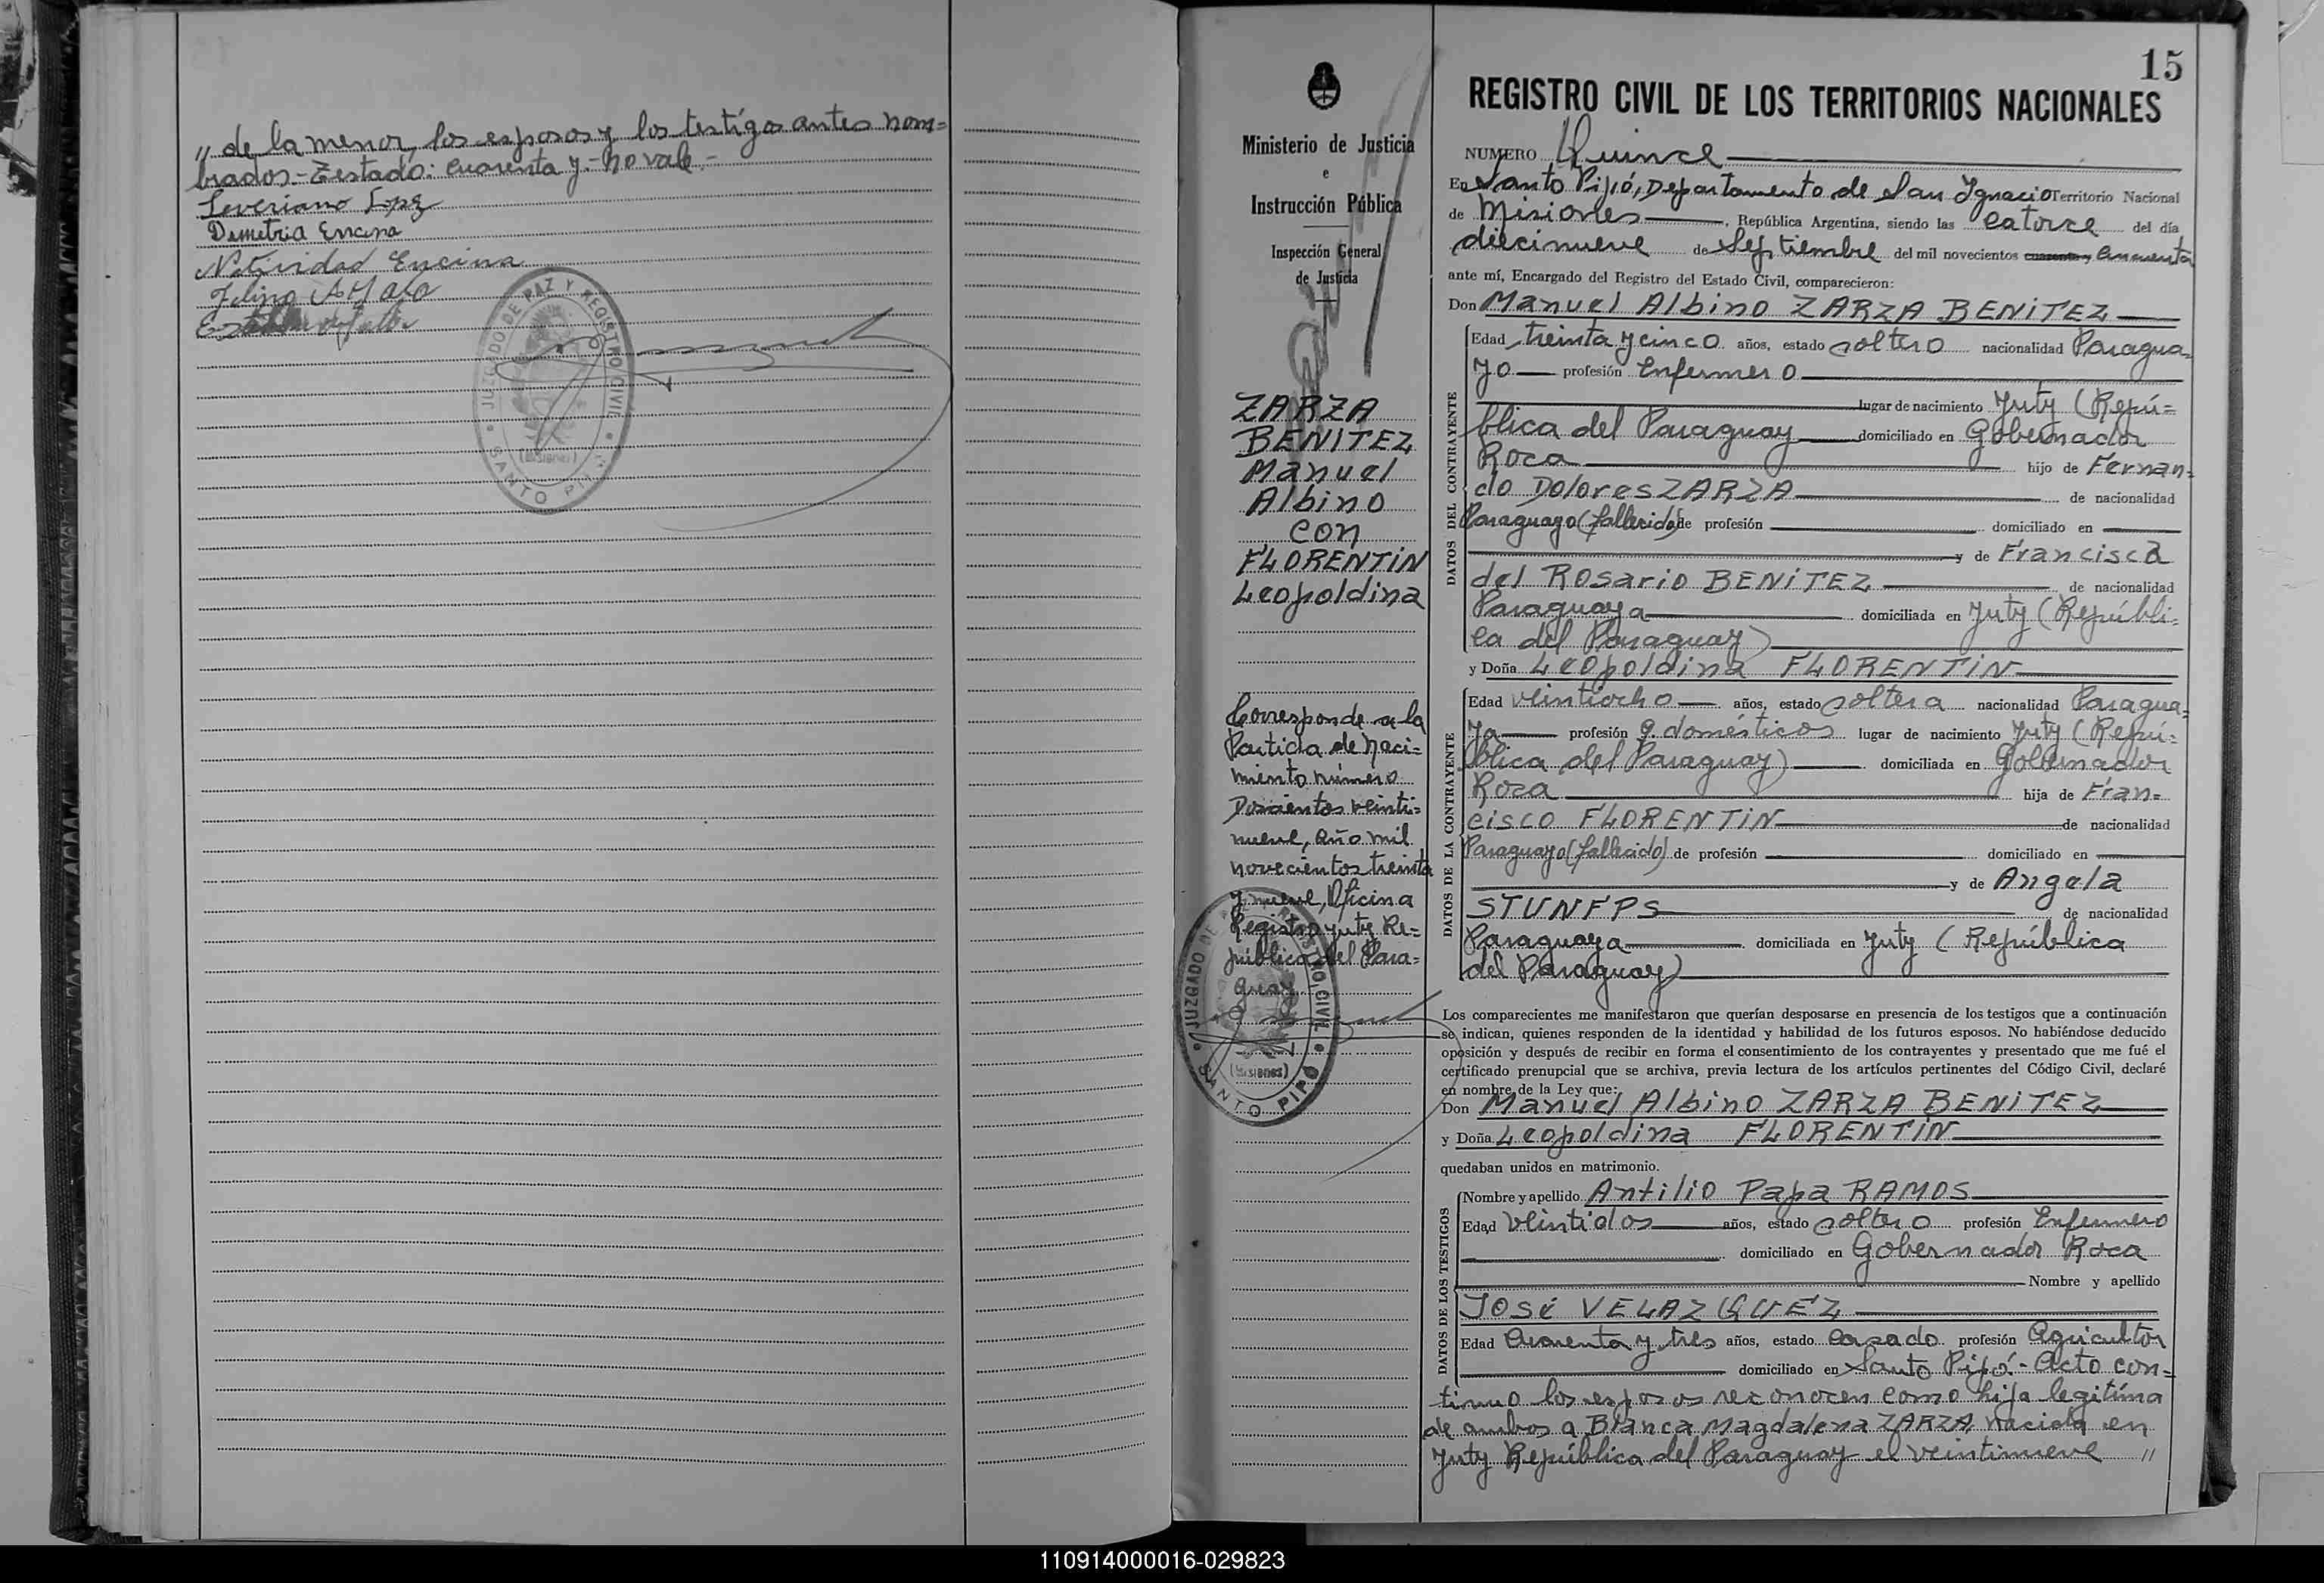 „ de la menor, los esposos y los testigos antes nom=
brados.- Testado: cuarenta y.- no vale.-
Severiano Lopez
Demetria Encina
Natividad Encina
JUZGADO DE PAZ Y REGISTRO CIVIL
(Misiones)
SANTO PIPO
Ministerio de Justicia
e
Instrucción Pública
Inspección General
de Justicia
ZARZA
BENITEZ
Manuel
Albino
con
FLORENTIN
Leopoldina
Corresponde a la
Partida de Naci=
miento número
Doscientos veinti=
nueve, año mil
novecientos treinta
y nueve, Oficina
Registro Yuty Re=
pública del Para=
guay
JUZGADO DE PAZ Y REGISTRO CIVIL
(Misiones)
SANTO PIPO
15
REGISTRO CIVIL DE LOS TERRITORIOS NACIONALES
NUMERO Quince
En Santo Pipó, Departamento de San Ignacio Territorio Nacional
de Misiones, República Argentina, siendo las catorce del día
diecinueve de Septiembre del mil novecientos cuarenta y cincuenta
ante mí, Encargado del Registro del Estado Civil, comparecieron:
Don Manuel Albino ZARZA BENITEZ
DATOS DEL CONTRAYENTE
Edad treinta y cinco años, estado soltero nacionalidad Paragua=
yo profesión Enfermero
lugar de nacimiento Yuty (Repú=
blica del Paraguay domiciliado en Gobernador
Roca hijo de Fernan=
do Dolores ZARZA de nacionalidad
Paraguayo (fallecido) de profesión domiciliado en
y de Francisca
del Rosario BENITEZ de nacionalidad
Paraguaya domiciliada en Yuty (Repúbli=
ca del Paraguay)
y Doña Leopoldina FLORENTIN
DATOS DE LA CONTRAYENTE
Edad veintiocho años, estado soltera nacionalidad Paragua=
ya profesión q. domésticos lugar de nacimiento Yuty (Repú=
blica del Paraguay) domiciliada en Gobernador
Roca hija de Fran=
cisco FLORENTIN de nacionalidad
Paraguayo (fallecido) de profesión domiciliado en
y de Angela
STUNFPS de nacionalidad
Paraguaya domiciliada en Yuty (República
del Paraguay)
Los comparecientes me manifestaron que querían desposarse en presencia de los testigos que a continuación
se indican, quienes responden de la identidad y habilidad de los futuros esposos. No habiéndose deducido
oposición y después de recibir en forma el consentimiento de los contrayentes y presentado que me fué el
certificado prenupcial que se archiva, previa lectura de los artículos pertinentes del Código Civil, declaré
en nombre de la Ley que:
Don Manuel Albino ZARZA BENITEZ
y Doña Leopoldina FLORENTIN
quedaban unidos en matrimonio.
DATOS DE LOS TESTIGOS
Nombre y apellido Antilio Papa RAMOS
Edad veintidos años, estado soltero profesión Enfermero
domiciliado en Gobernador Roca
Nombre y apellido
José VELAZQUEZ
Edad Cuarenta y tres años, estado casado profesión Agricultor
domiciliado en Santo Pipó.- Acto con=
tinuo los esposos reconocen como hija legitima
de ambos a Blanca Magdalena ZARZA, nacida en
Yuty República del Paraguay el veintinueve „
110914000016-029823